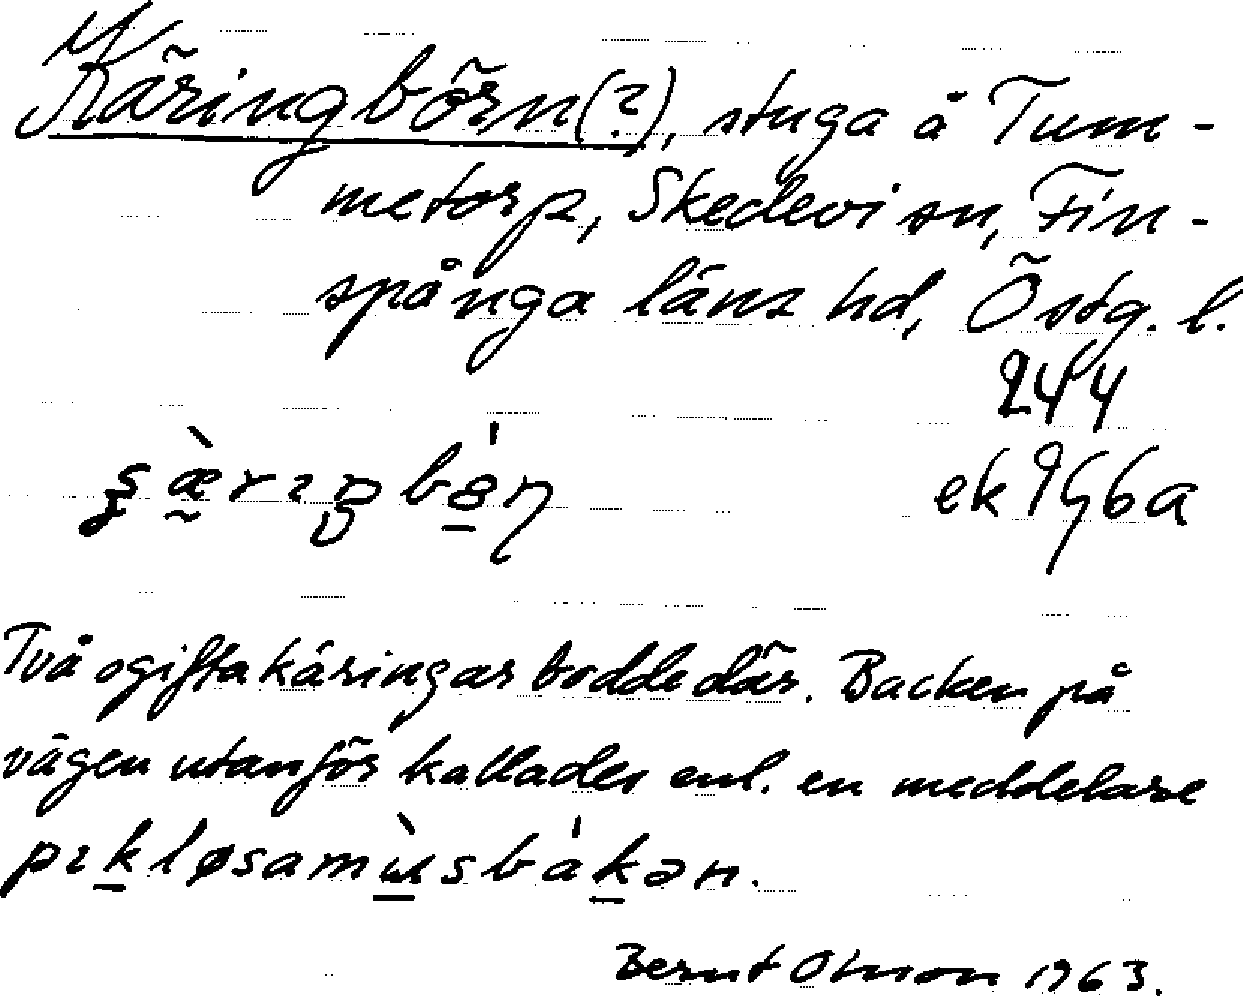 Käringbörn(?), stuga å Tum-
metorp, Skedevi sn, Fin-
spånga läns hd, Östg. l.
244
ek 9G6a
Två ogifta käringar bodde där. Backen på
vägen utanför kallades enl. en meddelare
Bernt Olsson 1963.